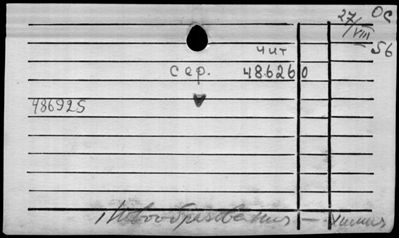 27/VIII 56 ОС
чит
сер. 486260
486925
Новообразования — химия